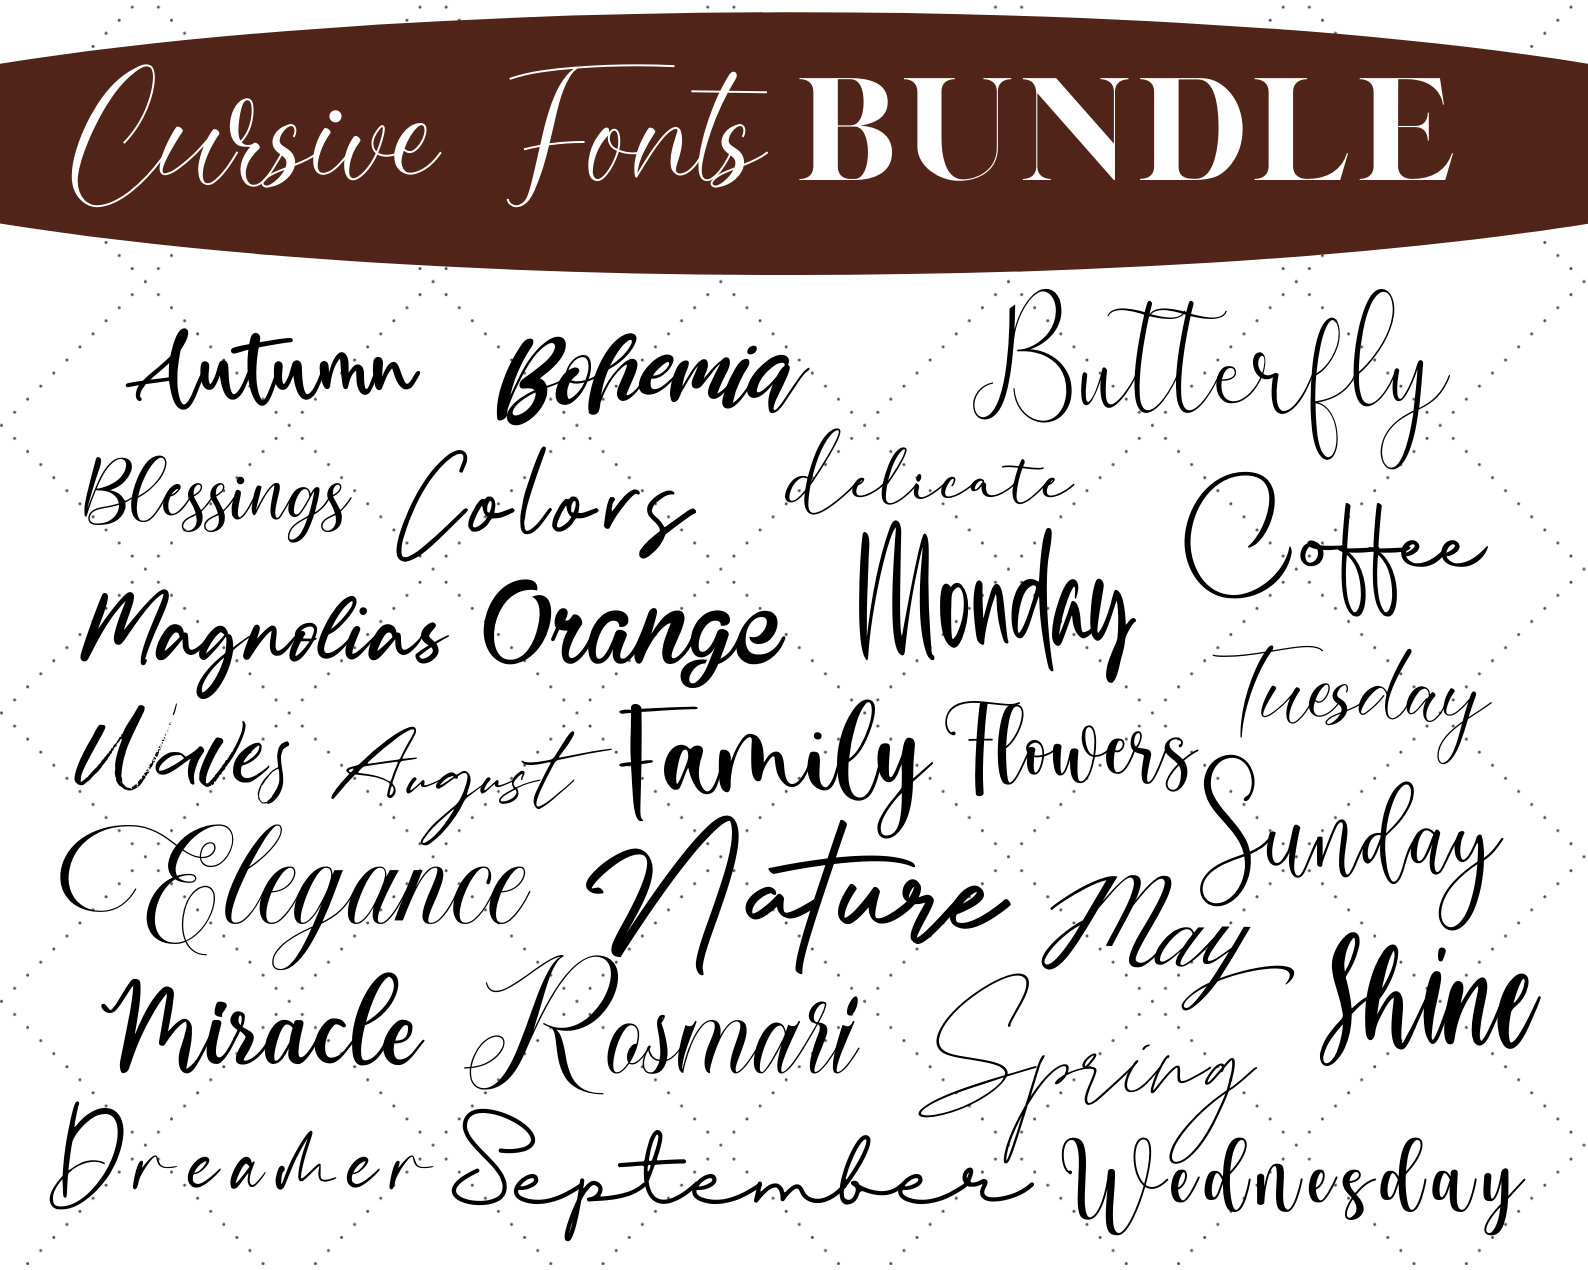 Cursive Fonts BUNDLE
Autumn Bohemia Butterfly
Blessings Colors delicate Coffee
Magnolias Orange Monday Tuesday
Waves August Family Flowers Sunday
Elegance Nature May Shine
Miracle Rosmari Spring
Dreamer September Wednesday